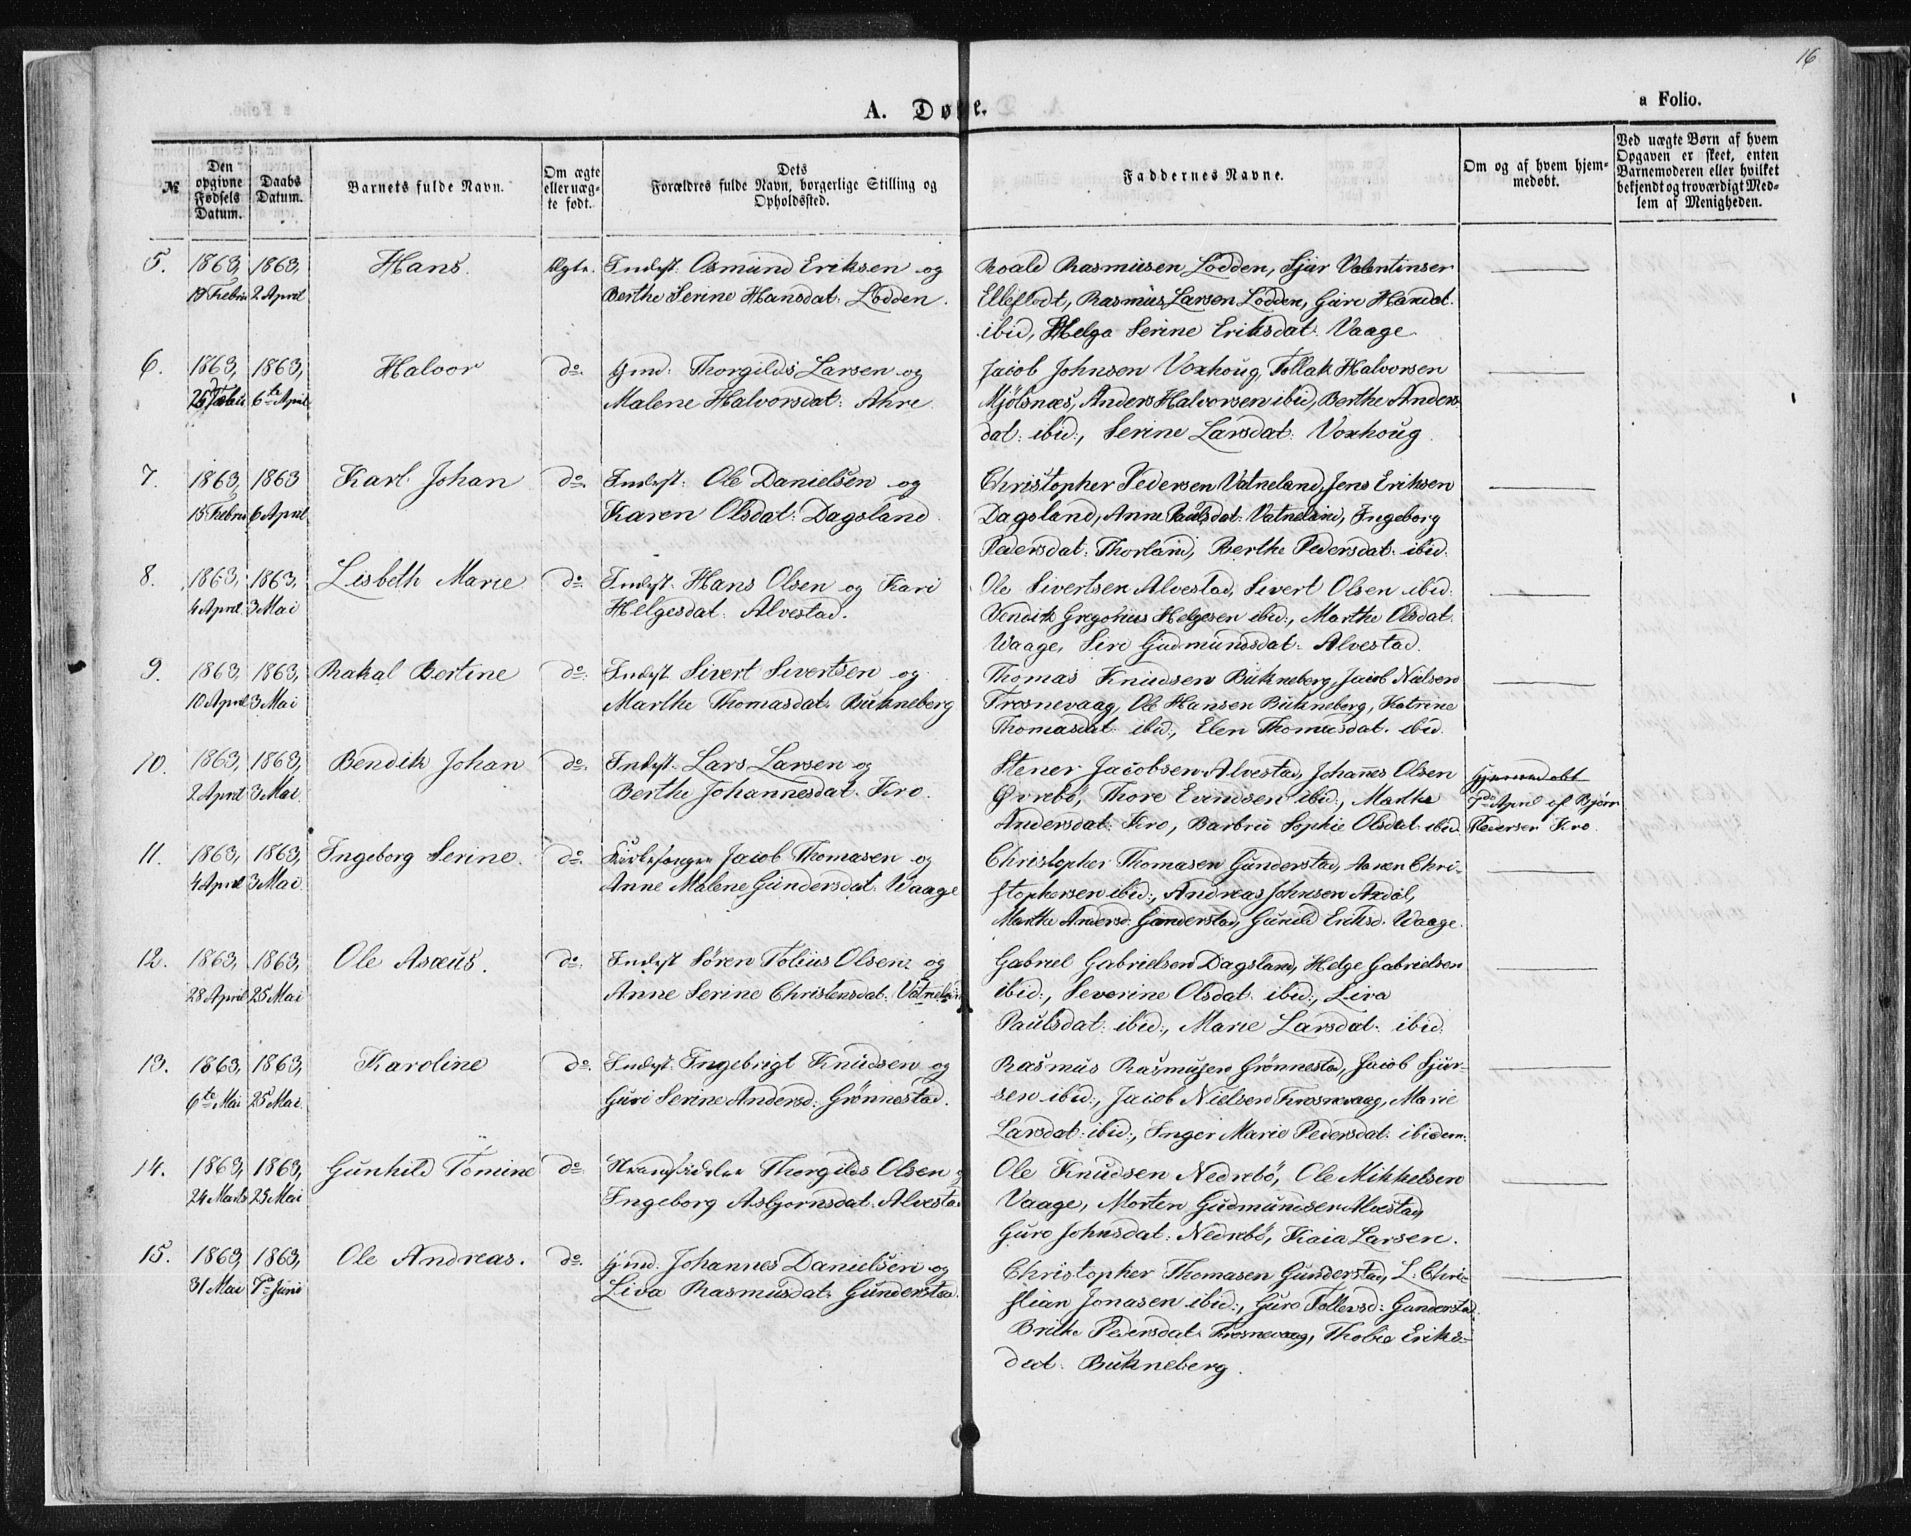 16
A. Døbe.
a Folio.
№
Den opgivne Fødsels Datum.
Daabs Datum.
Barnets fulde Navn.
Om ægte eller uægte født.
Dets Forældres fulde Navn, borgerlige Stilling og Opholdssted.
Faddernes Navne.
Om og af hvem hjemmedøbt.
Ved uægte Børn af hvem Opgaven er skeet, enten Barnemoderen eller hvilket bekjendt og troværdigt Medlem af Menigheden.
5. 1863, 1863, Hans. Ægte. Indst. Osmund Eriksen og
Febru 2 April Berthe Serine Hansdat: Lodden.
Roald Rasmusen Lodden, Sjur Valentinsen
Rasmus Larsen Lodden,
ibid, Helga Serine Eriksdat: Vaage
6. 1863, 1863, Halvor do. Gmd: Thorgilds Larsen og
6te April Malene Halvorsdat: Ahre
Jacob Johnsen Voxhoug, Tollak Halvorsen
Mjølsnæs, Anders Halvorsen ibid, Berthe Anders-
dat: ibid:, Serine Larsdat: Voxhoug.
7. 1863, 1863 Karl Johan do. Indst: Ole Danielsen og
15 Febru 6 April Karen Olsdat: Dagsland
Christopher Pedersen Vatneland, Jens Eriksen
Dagsland, Anne Paulsdat: Vatneland, Ingeborg
Pedersdat: Thorland, Berthe Pedersdat: ibid.
8. 1863, 1863, Lisbeth Marie do. Indst. Hans Olsen og Kari
4 April 3 Mai Helgesdat: Alvestad.
Ole Sivertsen Alvestad, Sivert Olsen ibid:
Gregorius Helgesen ibid:, Marthe Olsdat.
Waage, Siri Gudmundsdat: Alvestad.
9. 1863, 1863, Rakal Bertine do. Indst. Sivert Sivertsen og
10 April 3 Mai Marthe Thomasdat: Bukneberg
Thomas Knudsen Bukneberg, Jacob Nielsen
Frosnevaag, Ole Hansen Bukneberg, Katrine
Thomasdat: ibid, Elen Thomasdat. ibid.
10. 1863, 1863, Bendik Johan do. Indst: Lars Larsen og
2 April 3 Mai. Berthe Johannesdat: Kro.
Stener Jacobsen Alvestad, Johannes Olsen
Øvrebö, Thore Evindsen ibid:, Marthe
Andersdat: Kro, Barbro Sophie Olsdat: ibid.
Hjemmedøbt
April af Bjørn
Pedersen Kro.
11. 1863, 1863, Ingeborg Serine. do. Kirkesanger Jacob Thomasen og
4 April 3 Mai. Anne Malene Gundersdat: Waage
Christopher Thomasen Gunderstad, Chri-
stophersen ibid:, Andreas Johnsen Ardal,
Marthe Andersd: Gunderstad, Gunild Eriksd: Waage.
12. 1863, 1863, Ole Asæus. do. Indst Søren Tobius Olsen og
28 April 25 Mai Anne Serine Christensdat: Vatneland
Gabriel Gabrielsen Dagsland, Helge Gabrielsen
ibid:, Severine Olsdat: ibid:, Liva
Paulsdat: ibid:, Marie Larsdat: ibid.
13. 1863, 1863, Karoline do. Indst: Ingebrigt Knudsen og
6te Mai 25 Mai. Guri Serine Andersd: Grønnestad.
Rasmus Rasmusen Grønnestad, Jacob Sjur-
sen ibid:, Jacob Nielsen Frosnevaag, Marie
Larsdat: ibid:, Inger Marie Pedersdat: ibidem.
14. 1863, 1863, Gunhild Tomine do. Strandsidder Thorgilds Olsen og
24 Marts 25 Mai Ingeborg Asbjornsdat: Alvestad
Ole Knudsen Nedrebö, Ole Mikkelsen
Vaage, Morten Gudmundsen Alvestad,
Guro Johnsdat: Nedrebö, Kaia Larsen.
15. 1863, 1863, Ole Andreas. do. Gmd. Johannes Danielsen og
31 Mai 7de Juni Liva Rasmusdat: Gunderstad.
Christopher Thomasen Gunderstad, L: Chri-
stian Jonasen ibid:, Guro Tollevsd: Gunderstad
Brithe Pedersdat: Frosnevaag, Thobia Eriks-
dat: Bukneberg.